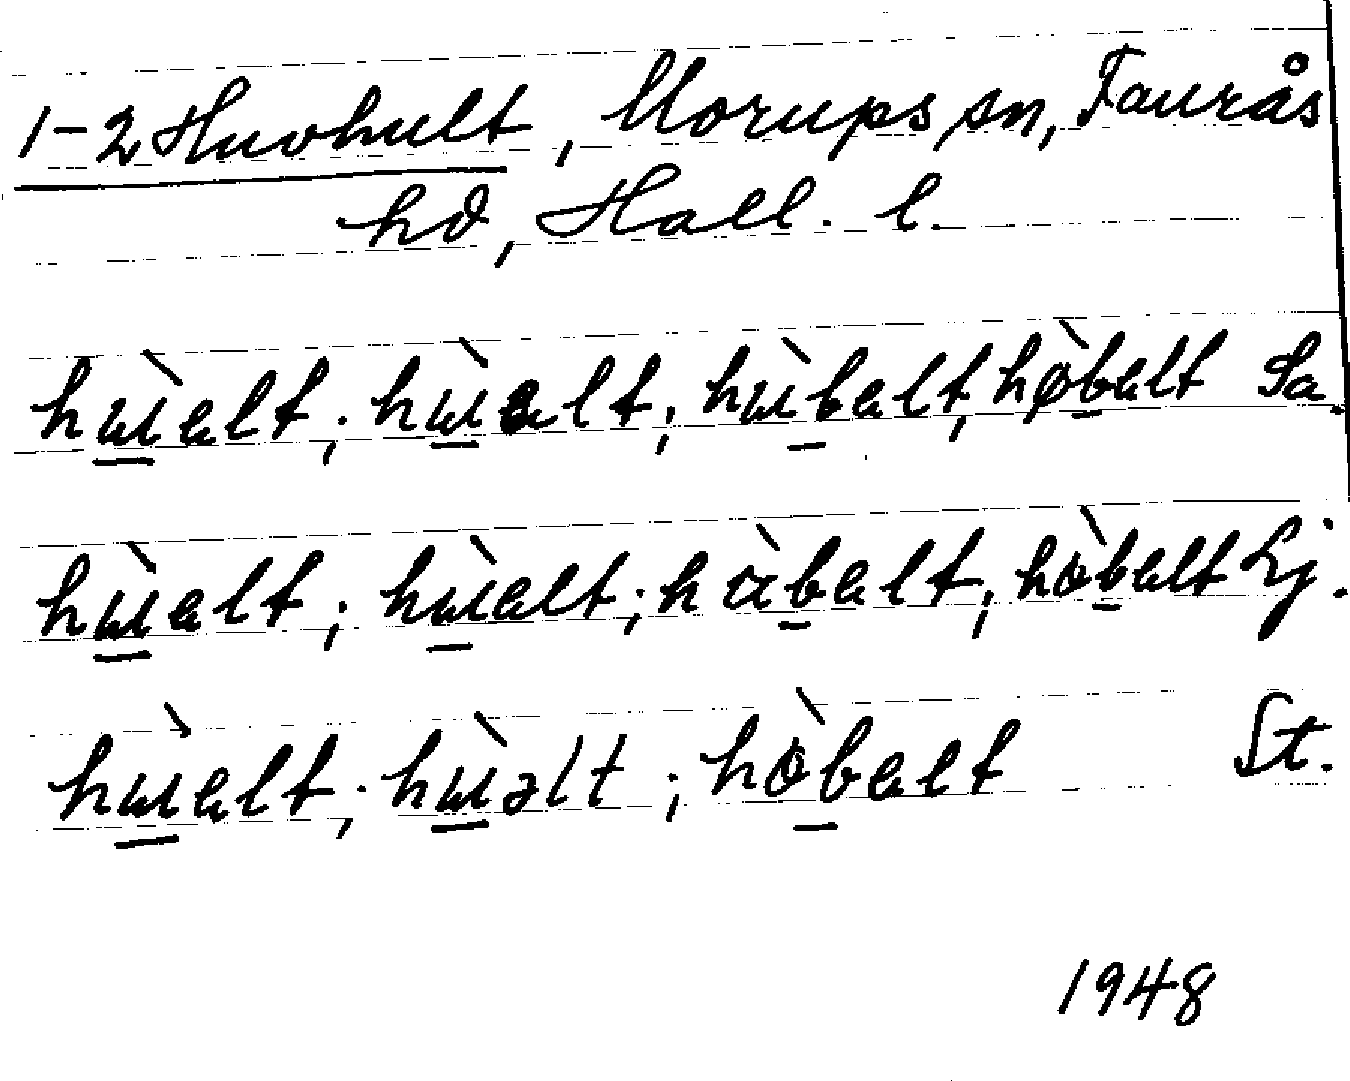 1-2 Huvhult, Morups sn, Faurås
hd, Hall. l.
hɯ̀alt; hɯ̀alt; hɯ̀balt, hø̀balt Sa.
hɯ̀alt; hɯ̀alt; hàbalt, hòbalt Lj.
hɯ̀alt; hɯ̀əlt; hòbalt St.
1948